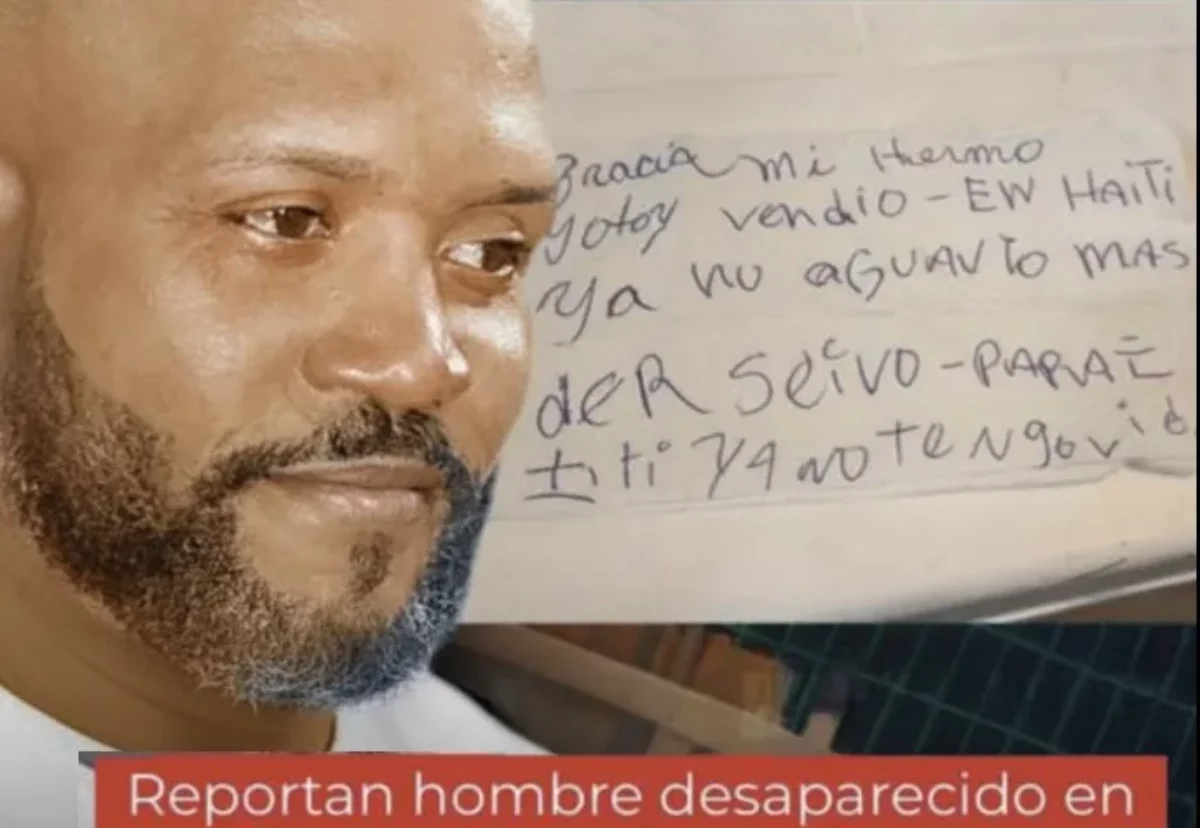 Gracia mi Hermo
yotoy vendio - EW HAITI
Ya no aGUAVTo MAS
deR SeivO - PARAI
titi Y4 NO TeNgo vid
Reportan hombre desaparecido en